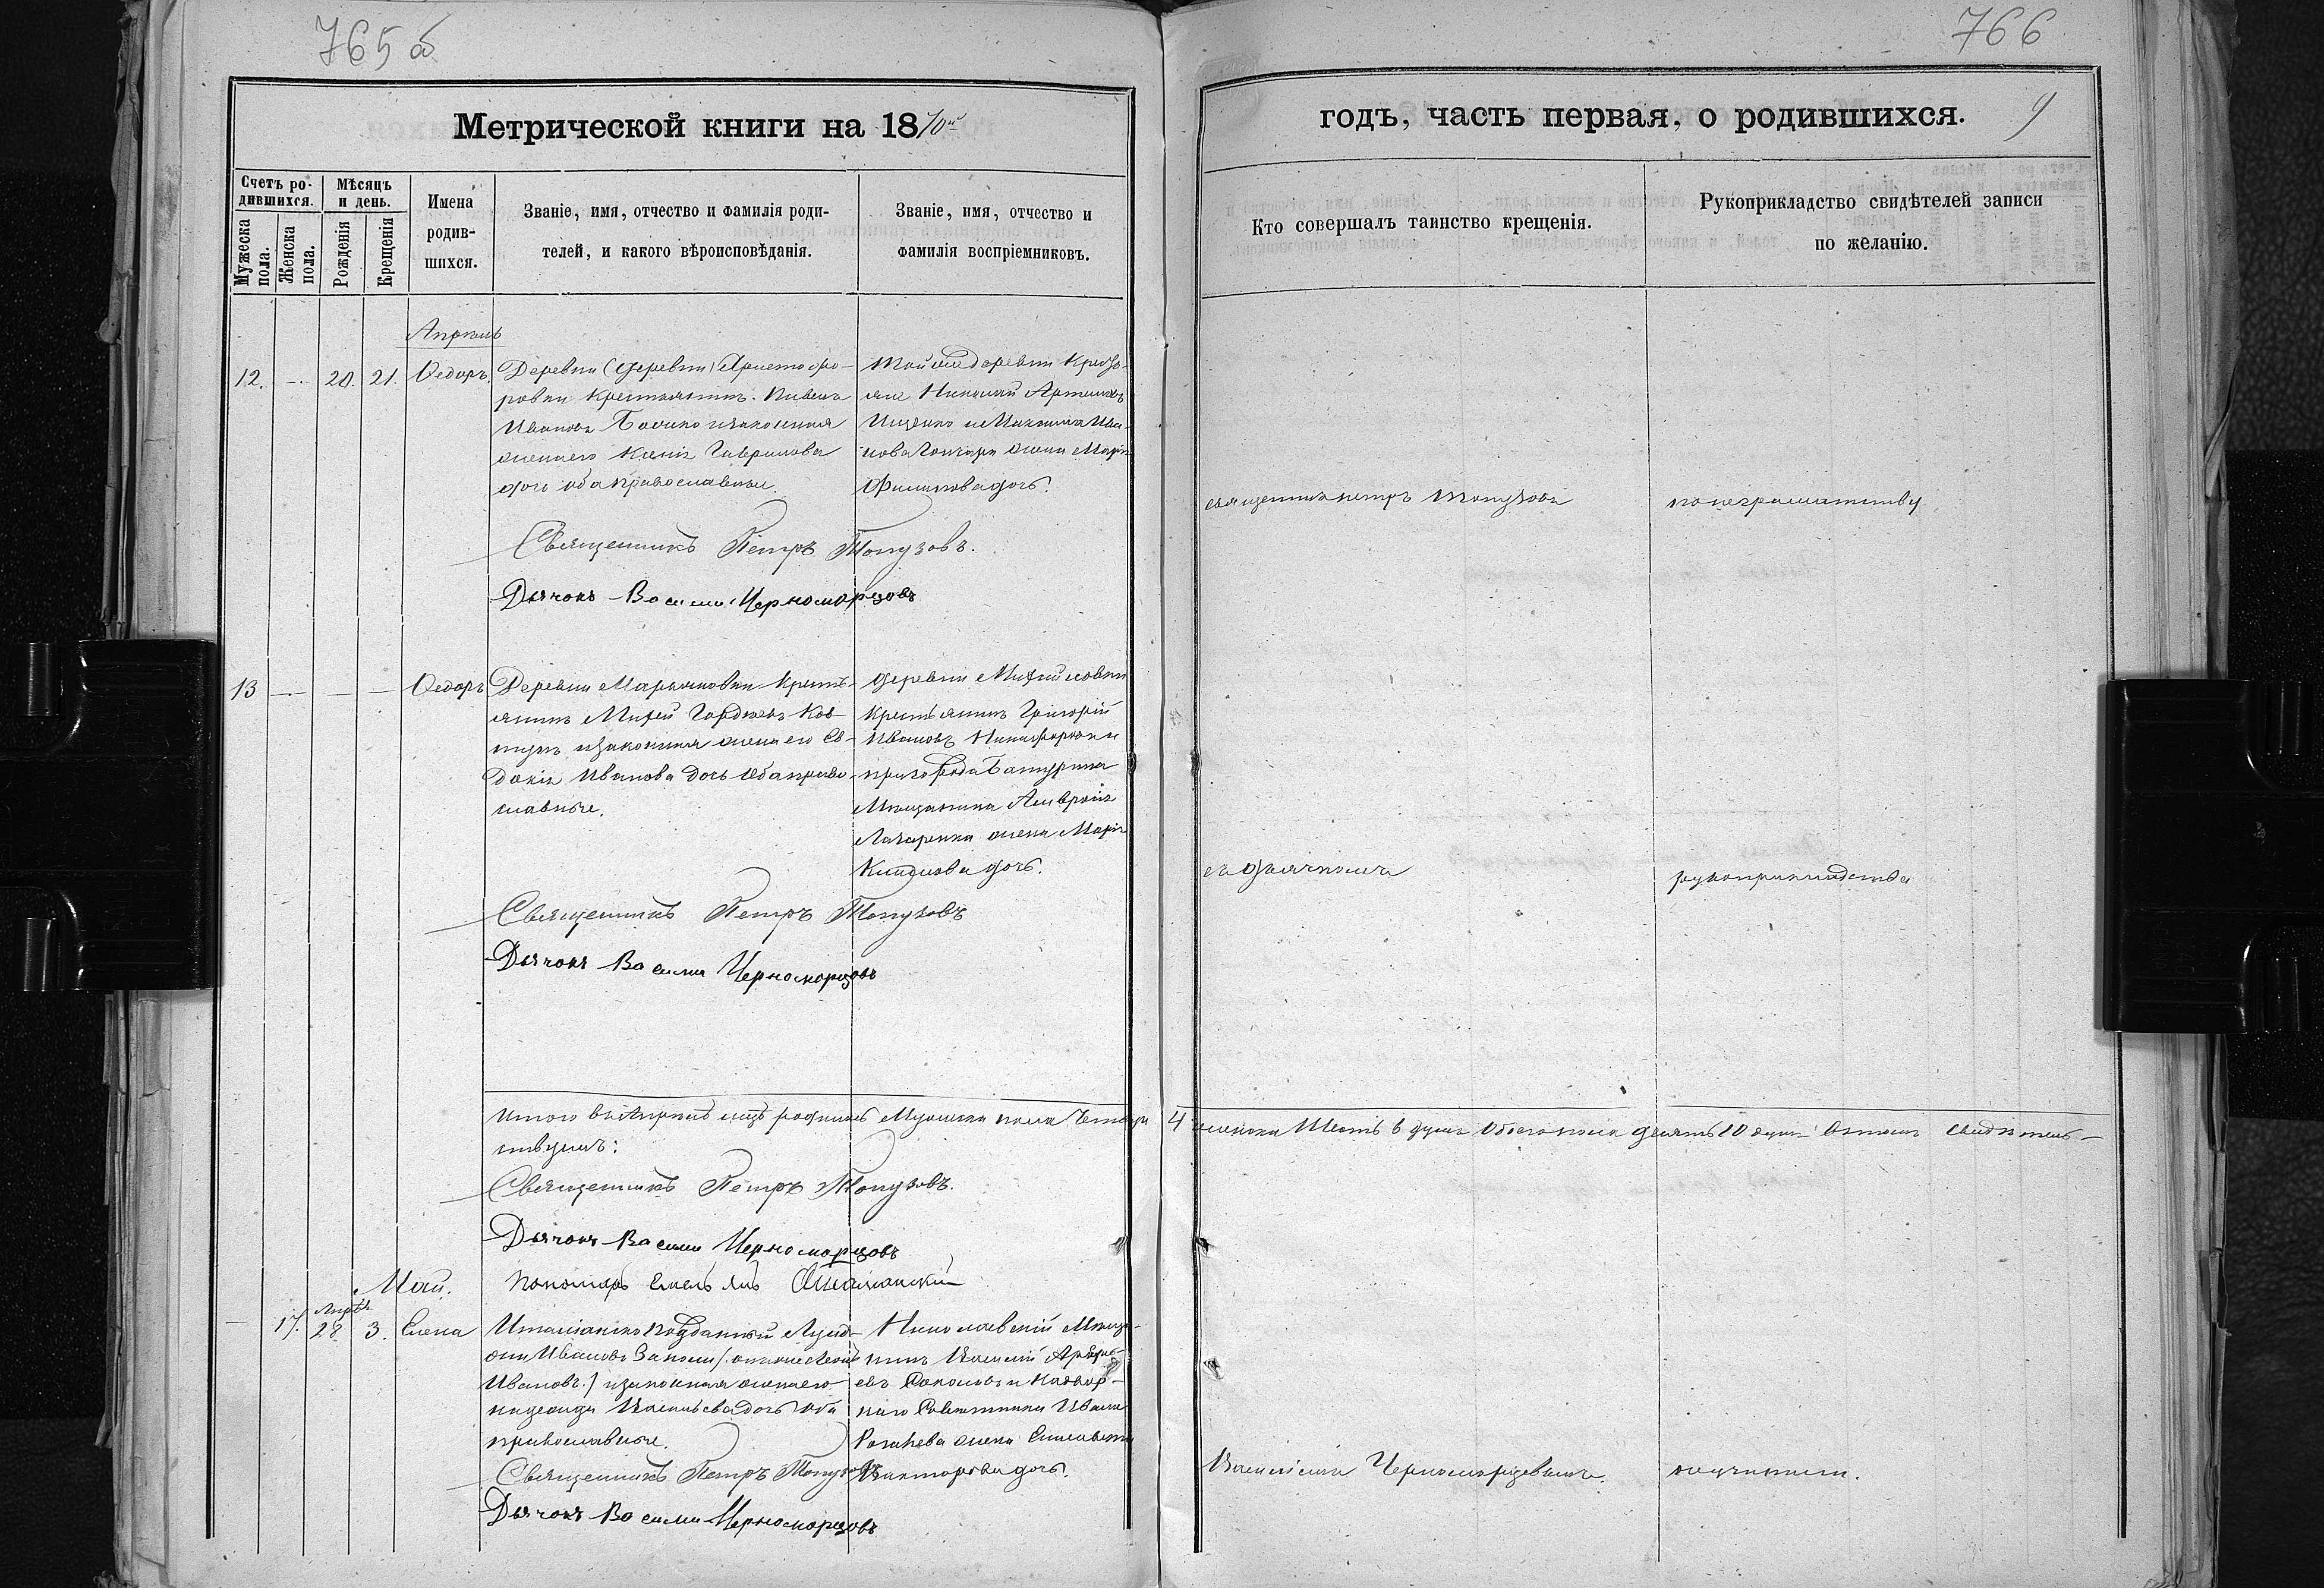 765 об
766
Метрической книги на 1870й
годъ, часть первая, о родившихся. 9
Счетъ ро-
дившихся.
Мужеска пола.
Женска пола.
Мѣсяцъ
и день.
Рожденія
Крещенія
Имена
родив-
шихся.
Званіе, имя, отчество и фамилія роди-
телей, и какого вѣроисповѣданія.
Званіе, имя, отчество и
фамилія воспріемниковъ.
Кто совершалъ таинство крещенія.
Рукоприкладство свидѣтелей записи
по желанію.
Апрѣль
12. — 20. 21. Ѳедоръ.
Деревни (деревни) Аристофо-
ровки крестьянинъ
Ивановъ законная
жена его Гаврилова
дочь оба православные.
той же деревни
Николай
Ива-
нова Гончара жена Марія
Филипова дочь.
священникъ Петръ Топузовъ
по неграматству
Священникъ Петръ Топузовъ.
Дьячокъ Василий Черноморцовъ
13 — — — Ѳедоръ
Деревни Марьяновки кресть-
янинъ Гордѣевъ Ков-
тунъ и законная жена его Ев-
докія Иванова дочь оба право-
славные.
деревни
крестьянинъ Григорій
Ивановъ Никифоровъ и
Батурина
Мѣщанина
Лазаренка жена Марія
дочь.
съ дьячкомъ
рукоприкладства
Священникъ Петръ Топузовъ
Дьячокъ Василий Черноморцовъ
Итого въ Апрѣлѣ мцѣ родилось Мужеска пола Четыре 4 женска Шесть 6 душъ Обоего пола десять 10 душъ В томъ свидѣтель-
ствуемъ:
Священникъ Петръ Топузовъ.
Дьячокъ Василий Черноморцовъ
Пономарь Емельянъ
Май.
— 17. Апрѣл 28 3. Елена
Италіанско подданный
Ивановъ
Ивановъ.) и законная жена его
Васильева дочь оба
православные.
Николаевскій Мѣща-
нинъ Василій
евъ Соколовъ и Надвор-
наго Совѣтника Ивана
Рогачева жена Елисавета
Викторова дочь.
Василіемъ Черноморцевымъ.
неучинили.
Священникъ Петръ Топузовъ
Дьячокъ Василий Черноморцовъ